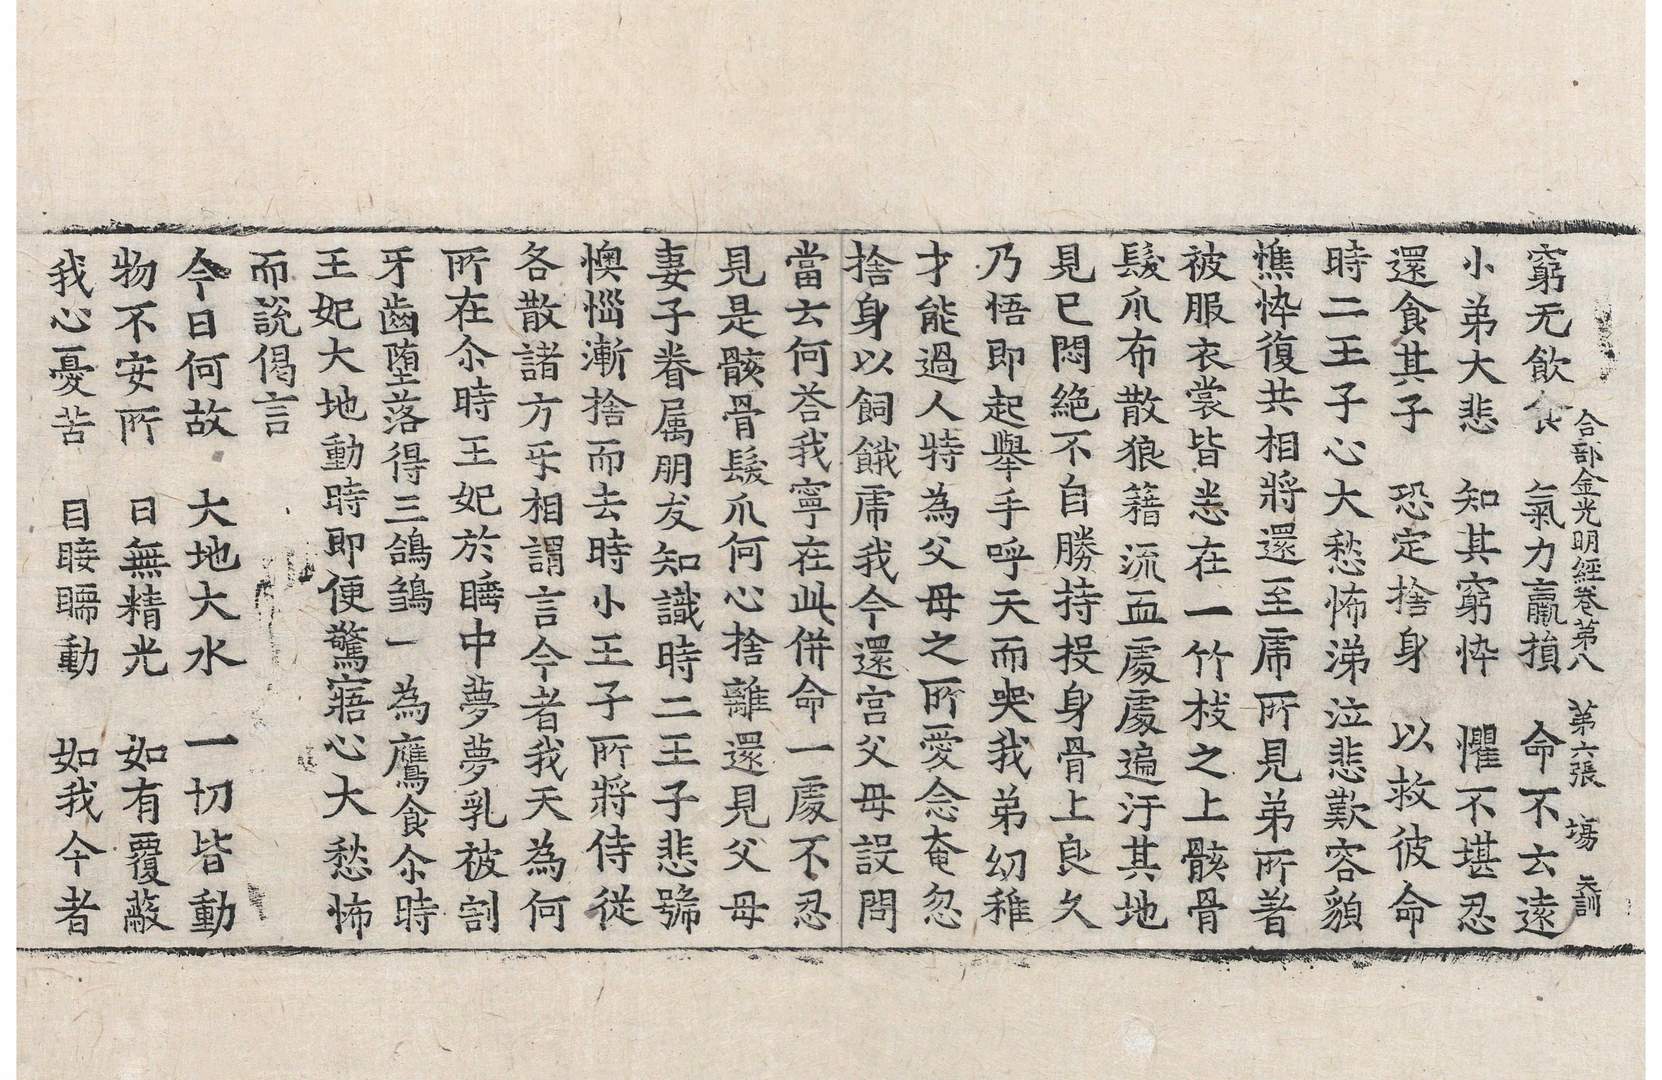 合部金光明經卷第八 第六張 塲 天訓
窮无飲食 氣力羸損 命不云遠
小弟大悲 知其窮悴 懼不堪忍
還食其子 恐定捨身 以救彼命
時二王子心大愁怖涕泣悲歎容貌
憔悴復共相將還至虎所見弟所著
被服衣裳皆悉在一竹枝之上骸骨
髮爪布散狼籍流血處處遍汙其地
見已悶絕不自勝持投身骨上良久
乃悟即起舉手呼天而哭我弟幼稚
才能過人特為父母之所愛念奄忽
捨身以飼餓虎我今還宮父母設問
當云何荅我寧在此併命一處不忍
見是骸骨髮爪何心捨離還見父母
妻子眷属朋友知識時二王子悲號
懊惱漸捨而去時小王子所將侍從
各散諸方乐相謂言今者我天為何
所在尒時王妃於睡中夢夢乳被割
牙齒墮落得三鴿鶵一為鷹食尒時
王妃大地動時即便驚寤心大愁怖
而說偈言
今日何故 大地大水 一切皆動
物不安所 日無精光 如有覆蔽
我心憂苦 目䀹瞤動 如我今者